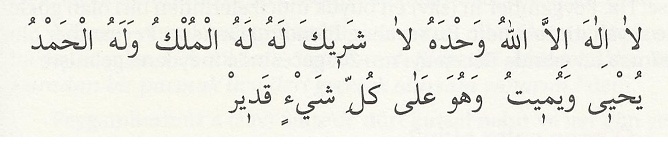 لاٰ اِلٰهَ اِلاَّ اللهُ وَحْدَهُ لاٰ شَرِيكَ لَهُ لَهُ الْمُلْكُ وَلَهُ الْحَمْدُ
يُحْيٖى وَيُمٖيتُ وَهُوَ عَلٰى كُلِّ شَيْءٍ قَدٖيرْ